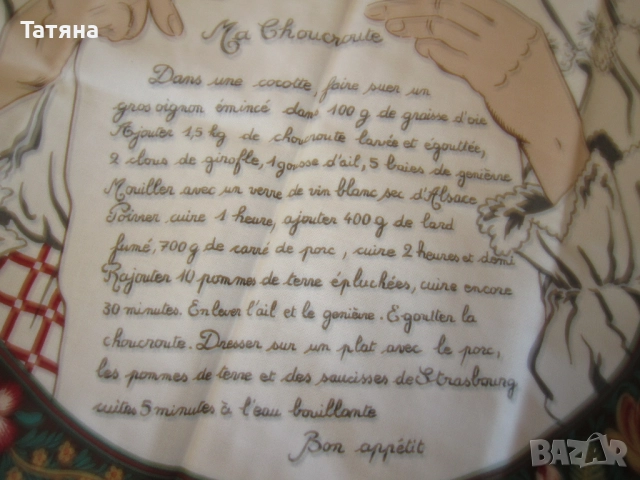 Татяна
Ma Choucroute
Dans une cocotte, faire suer un
gros oignon émincé dans 100 g de graisse d'oie
Ajouter 1,5 kg de choucroute lavée et égouttée,
2 clous de girofle, 1 gousse d'ail, 5 baies de genièvre
Mouiller avec un verre de vin blanc sec d'Alsace
Poivrer, cuire 1 heure, ajouter 400 g de lard
fumé, 700 g de carré de porc, cuire 2 heures et demi
Rajouter 10 pommes de terre épluchées, cuire encore
30 minutes. Enlever l'ail et le genièvre. Egoutter la
choucroute. Dresser sur un plat avec le porc,
les pommes de terre et des saucisses de Strasbourg
cuites 5 minutes à l'eau bouillante
Bon appétit
BAZAR
bg